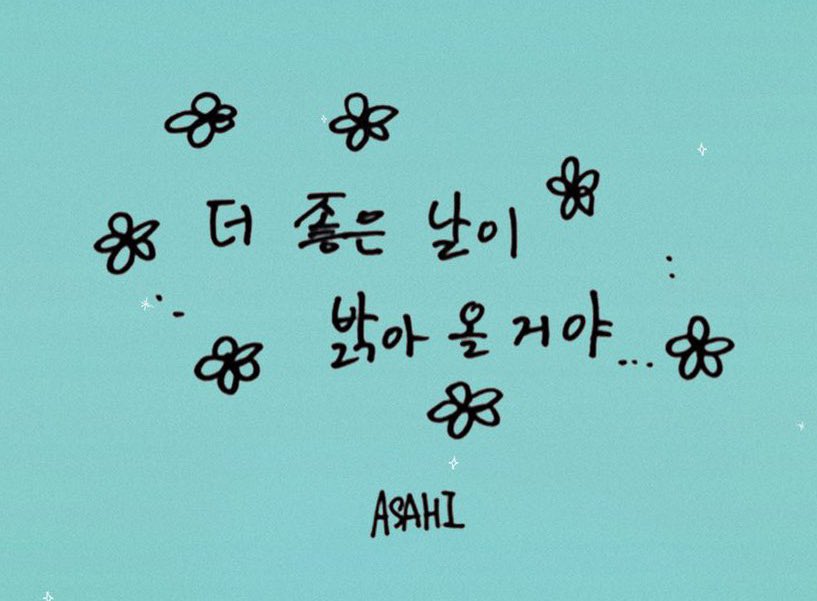 더 좋은 날이
밝아 올 거야...
ASAHI